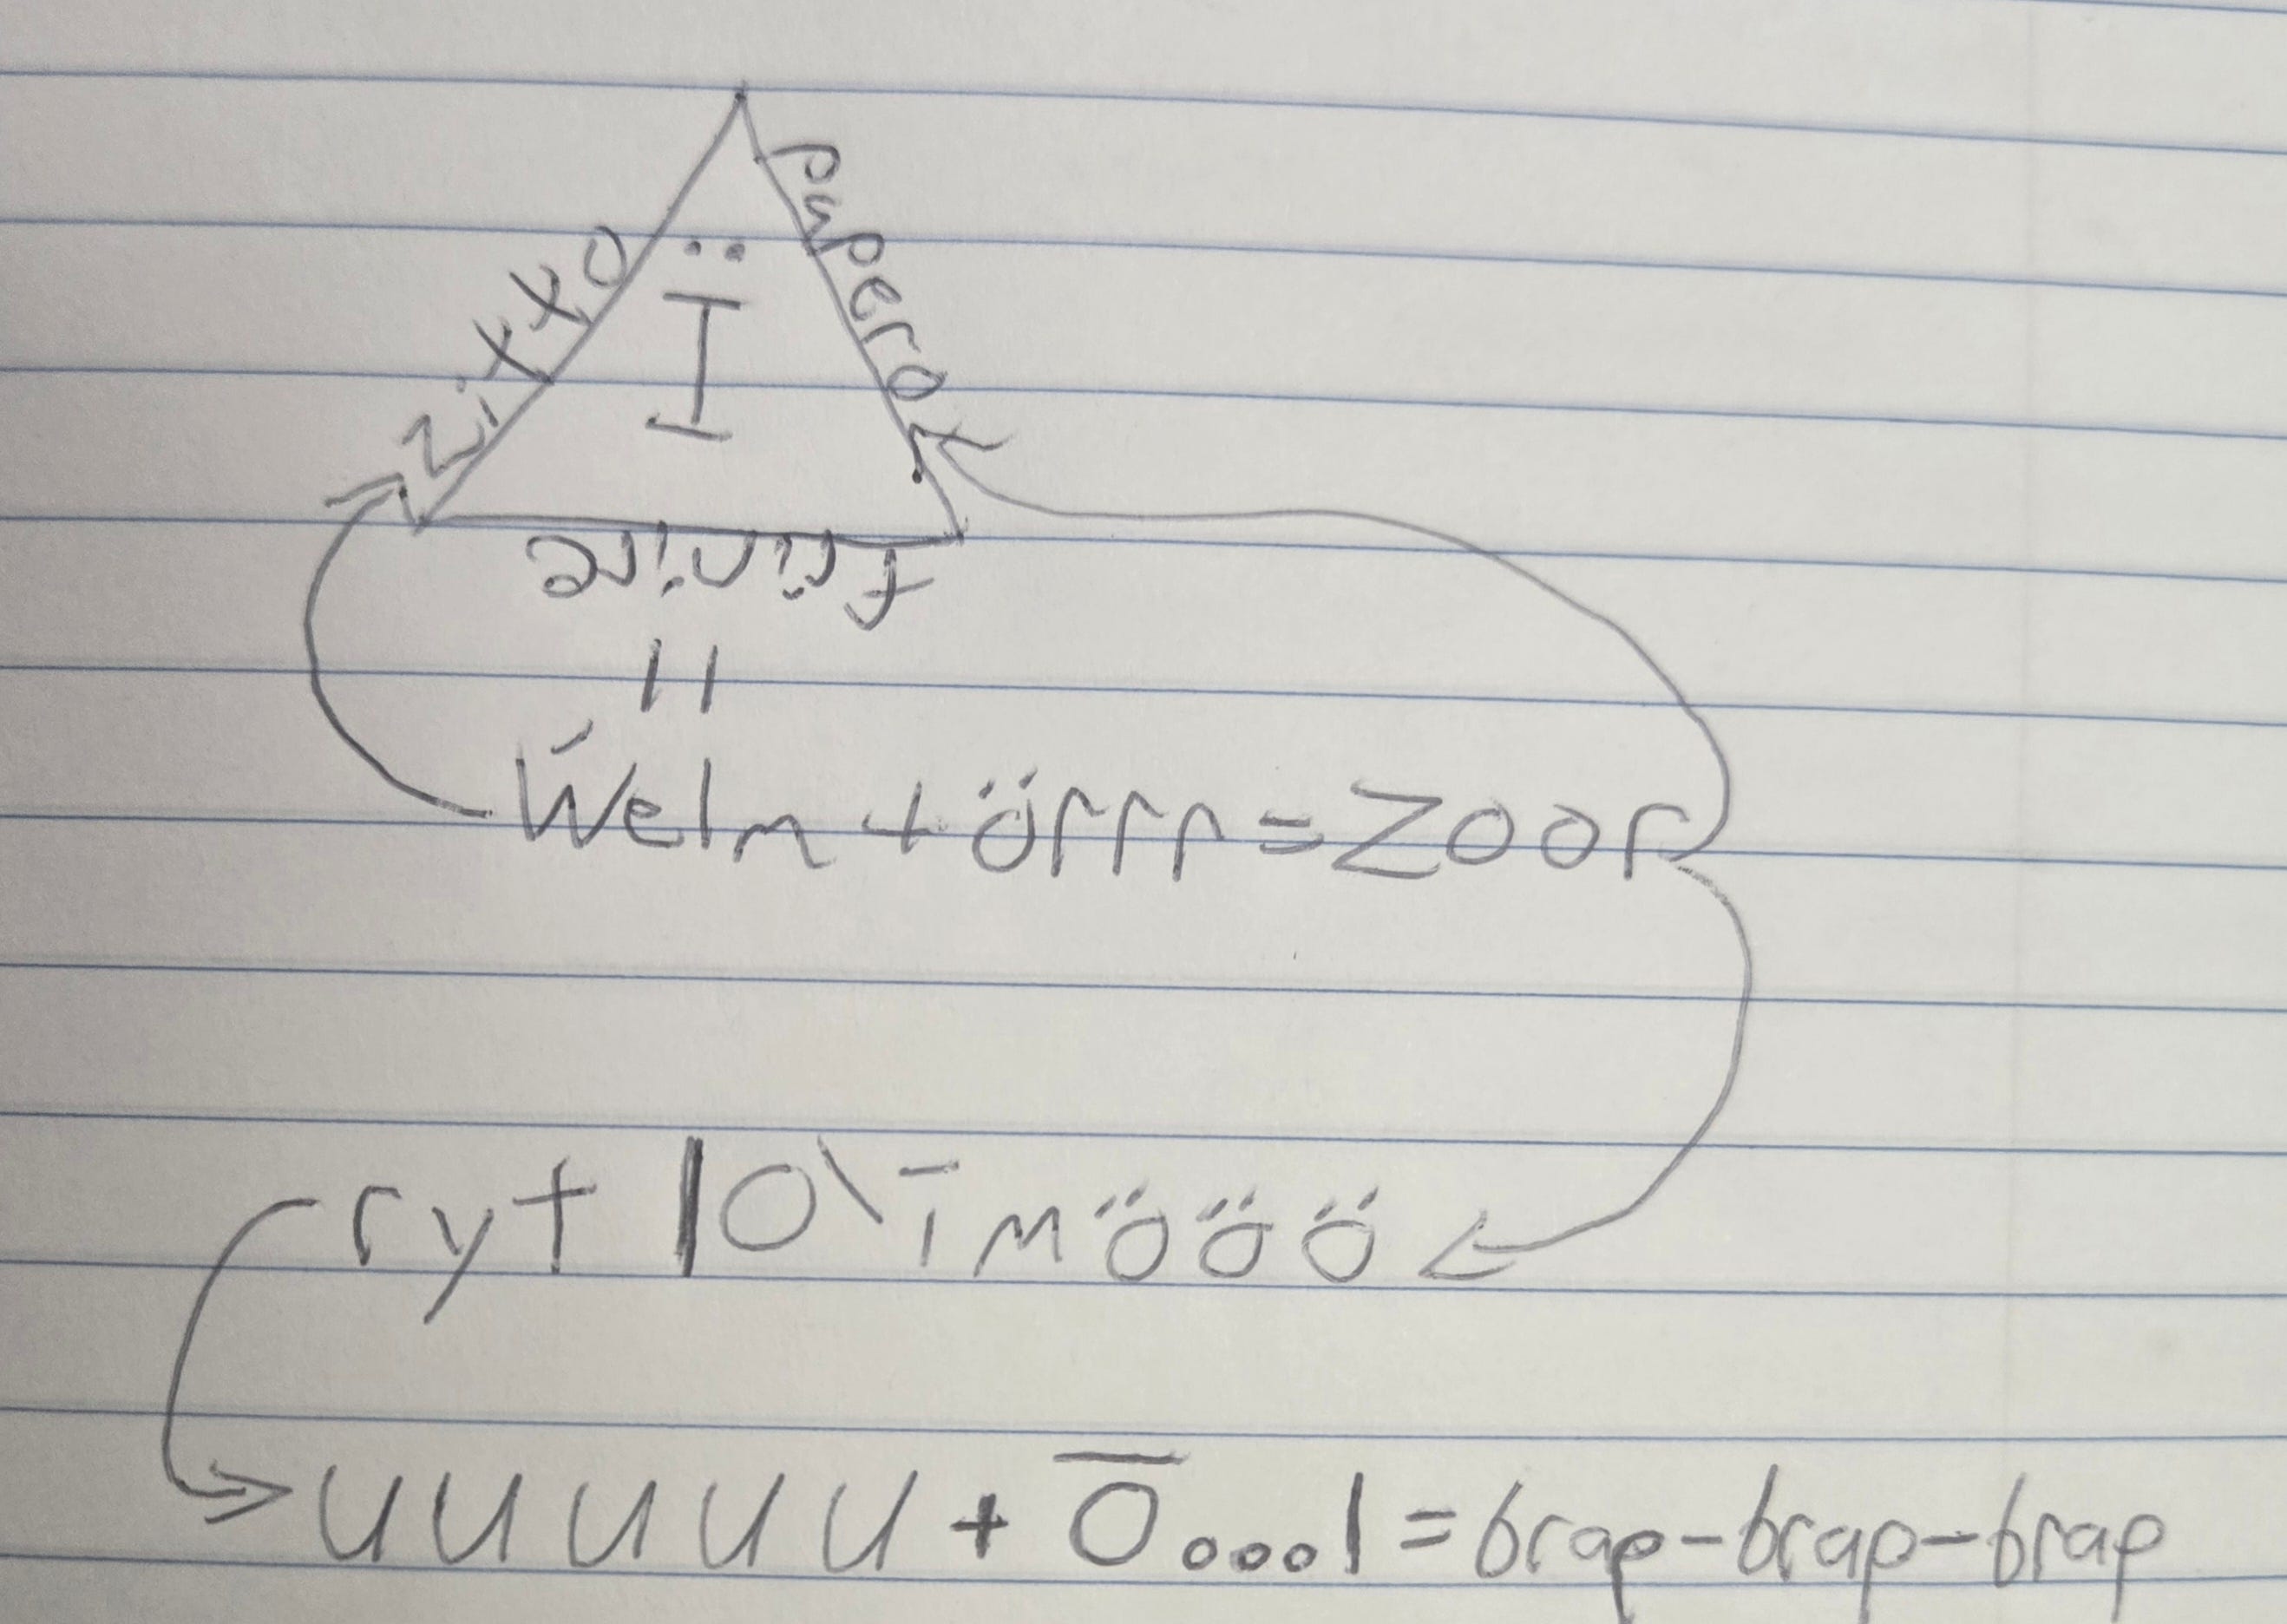 Zitto
puperot
Ï
fünire
=
Ẃelm + örrr = Zoor
ryt | O \ īmööö
UUUUU + Ō...oooo| = brap-brap-brap